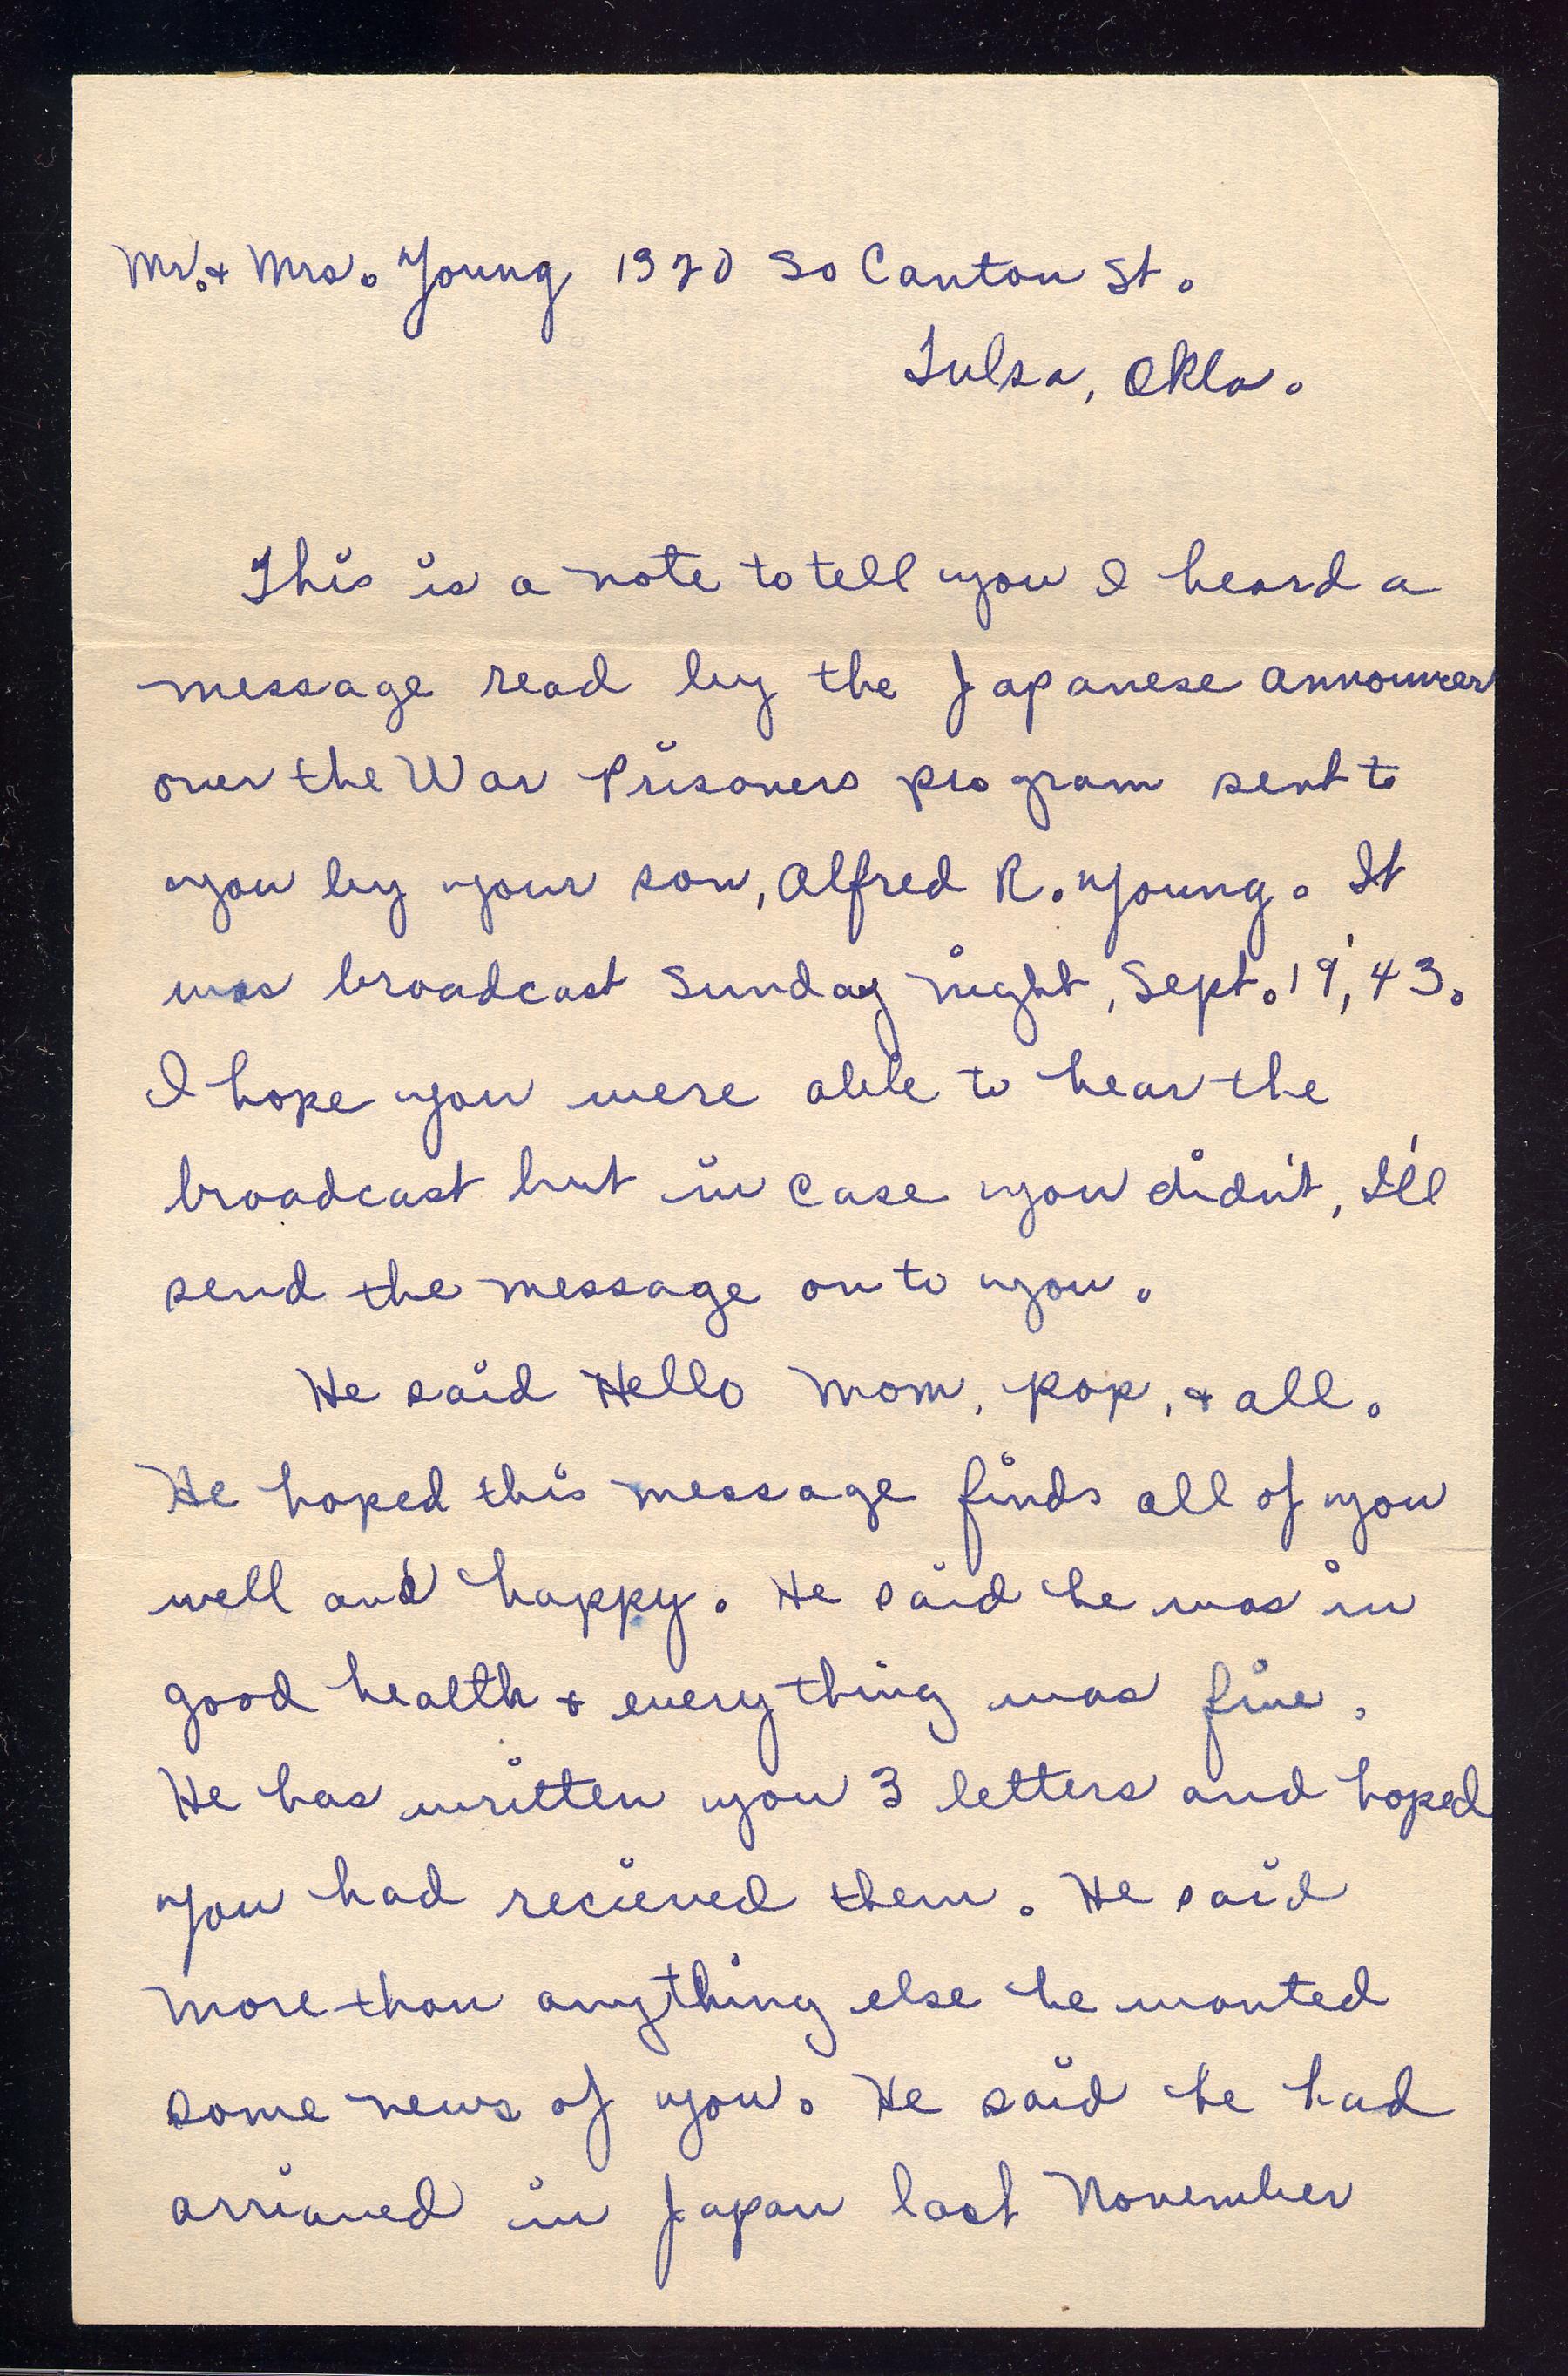 Mr. & Mrs. Young 1320 So Canton St.
Tulsa, Okla.
This is a note to tell you I heard a
message read by the Japanese announcer
over the War Prisoners program sent to
you by your son, Alfred R. Young. It
was broadcast Sunday night, Sept. 19, '43.
I hope you were able to hear the
broadcast but in case you didn't, I'll
send the message on to you.
He said Hello Mom, Pop, & all.
He hoped this message finds all of you
well and happy. He said he was in
good health & everything was fine.
He has written you 3 letters and hoped
you had recieved them. He said
more than anything else he wanted
some news of you. He said he had
arrived in Japan last November